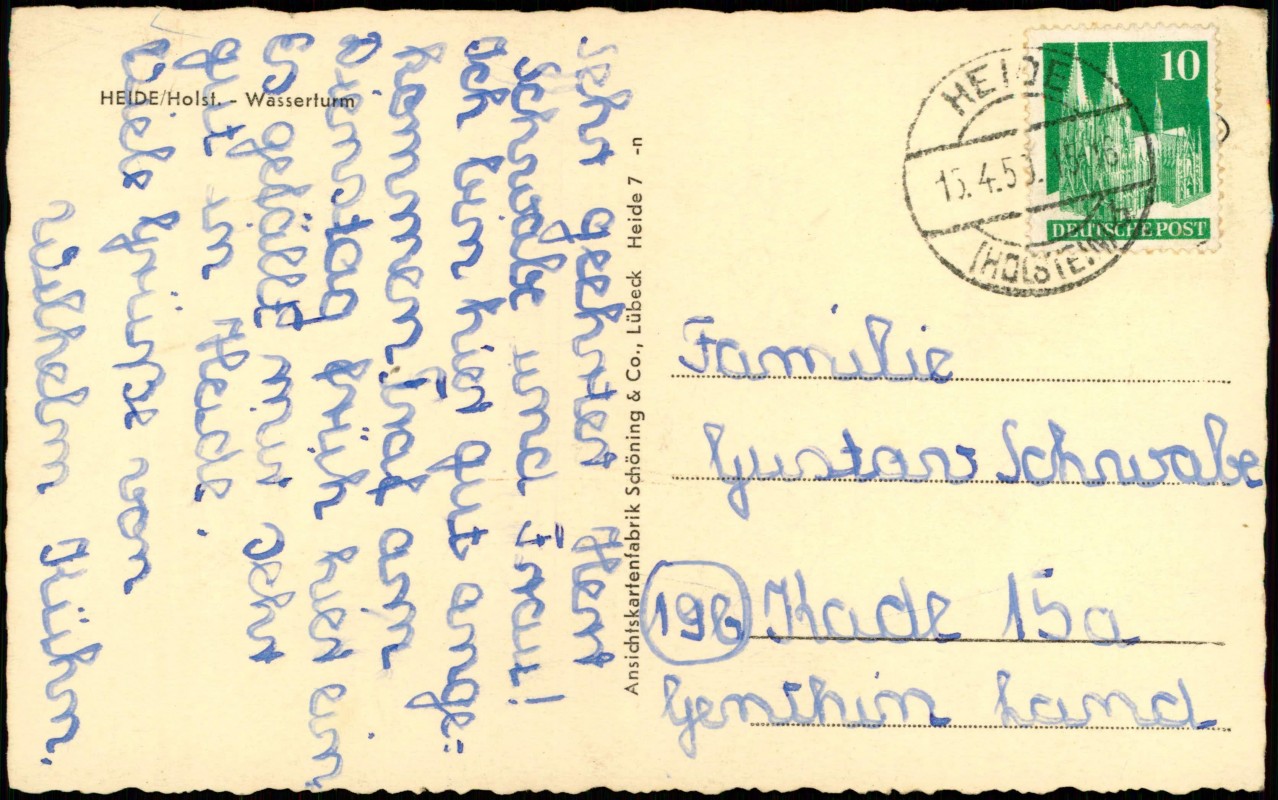 HEIDE/Holst. - Wasserturm
Sehr geehrter Herr
Schwabe und Frau!
Ich bin hier gut ange=
kommen. Traf am
Dienstag früh hier ein.
Es gefällt mir sehr
gut in Heide.
Viele Grüße von
Wilhelm Kühn.
Ansichtskartenfabrik Schöning & Co., Lübeck Heide 7 -n
HEIDE
(HOLSTEIN)
10
DEUTSCHE POST
Familie
Gustav Schwabe
(19b) Kade 15a
Genthin Land